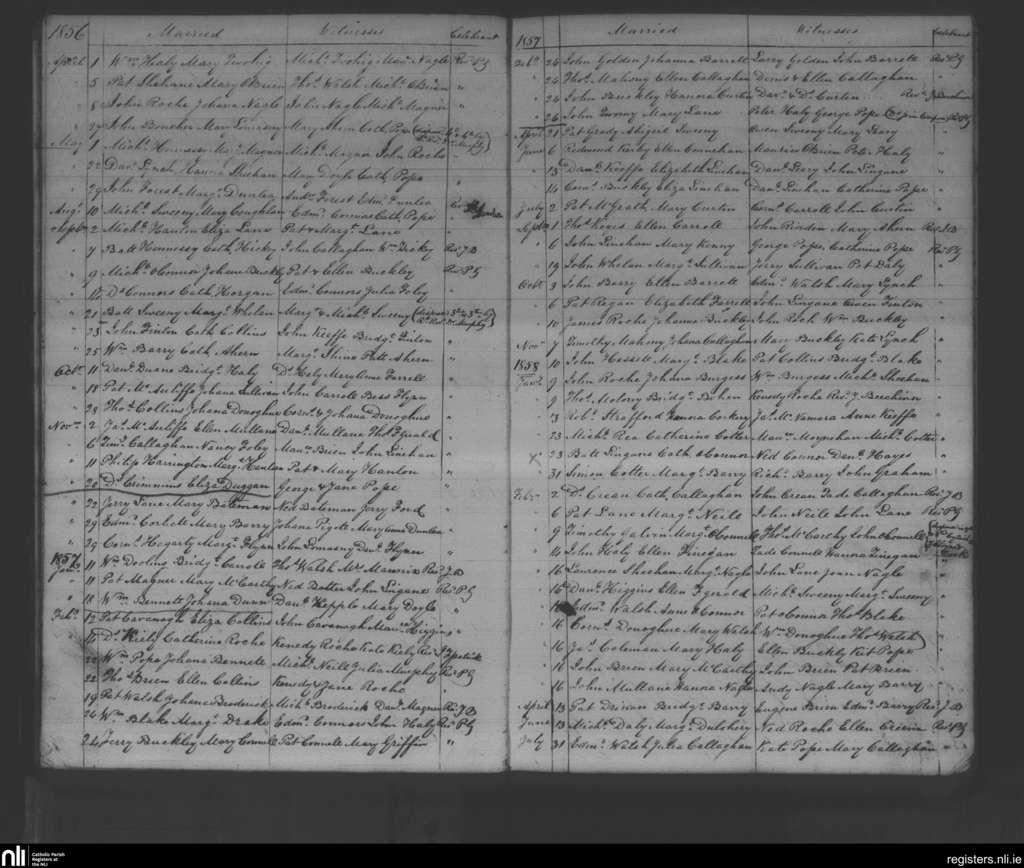 1856 Married Witnesses Celebrant
April 1 Wm Haly Mary Twohig Michl Twohig Mau Nagle Revd PG
" 5 Pat Shehane Mary O Brien Thos Walsh Michl O Brien "
" 8 John Roche Johana Nagle John Nagle Michl Magner "
" 27 John Boucher Mary Mary Ahern Cath Pope
May 1 Michl Hennessy Magner Michl Magner John Roche
" 22 Davd Lynch Hanora Sheehan Mary Cath Pope "
" 27 John Forest Margt Dunlea Andw Forest Edmd Dunlea "
Augt 10 Michl Sweeny Mary Coughlan Edmd Connors Cath Pope Revd
Septr 2 Michl Hanlon Eliza Lane Pat & Margt Lane "
" 7 Batt Hennessy Cath Hickey John Callaghan Wm Hickey Revd JB
" 9 Michl O Connor Johana Buckly Pat & Ellen Buckley Revd PG
" Ds Connors Cath Horgan Edmd Connors Julia Foley
" 21 Batt Sweeny Margt Whelan Margt & Michl Sweeny
" 23 John Finton Cath Collins John Keeffe Bridgt Finton
" 25 Wm Barry Cath Ahern Margt Shine Patt Ahern "
Octr 11 Denl Duane Bridgt Haly Ds Haly Mary Anne Farrell "
" 18 Pat McAuliffe Johana Sullivan John Carroll Bess Flynn "
" 28 Thos Collins Johana Donoghue Corns & Johana Donoghue "
Novr 2 Jas McAuliffe Ellen Mullane Danl Mullane Thos Gerald "
" 6 Timy Callaghan Nancy Foley Maue Brien John Linehan "
" 11 Philip Harrington Margt Hanlon Pat & Mary Hanlon "
" 20 Ds Crimmins Eliza Duggan George & Jane Pope "
" 22 Jerry Lane Mary Bateman Ned Bateman Jerry Ford "
" 29 Edmd Corbett Mary Barry Johana Pigott Mary Anne Dunlea "
" 29 Corns Hogarty Margt Flynn John Lomasny Denl Flynn "
1857
Jany 11 Wm Dooling Bridgt Carroll Thos Walsh Mrs Maurice Revd JB
" 11 Pat Magner Mary McCarthy Ned Batter John Lingane Revd PG
" 18 Wm Bennett Johana Dunn Danl Hepple Mary Doyle "
Feby 12 Pat Cavanagh Eliza Collins John Cavanagh Higgins "
Ds Kiely Catherine Roche Kenedy Roche Kate Kiely Revd
" 22 Wm Pope Johana Bennett Michl Neill Julia Murphy Revd PG
" 22 Thos Brien Ellen Collins Kenedy & Jane Roche "
" 19 Pat Walsh Johana Broderick Michl Broderick Danl Magner Revd JB
" 24 Wm Blake Margt Drake Edmd Connors John Haly Revd PG
24 Jerry Buckley Mary Connell Pat Connell Mary Griffin "
1857 Married Witnesses Celebrant
Feby 24 John Golden Johanna Barrett Larry Golden John Barrett Revd PG
" 24 Thos Mahony Ellen Callaghan Denis & Ellen Callaghan "
" 24 John Buckley Hanora Curtin Davd & Ds Curtin Revd J Beechinor
" 26 John Mary Lane Peter Haly George Pope
April 21 Pat Grady Abigail Sweeny Owen Sweeny Mary Geary "
June 6 Redmond Kirby Ellen Maurice O Brien Peter Haly "
" 13 Danl Keeffe Elizabeth Linehan Danl Berry John Lingane "
" 14 Corns Buckley Eliza Linehan Danl Linehan Catherine Pope "
July 2 Pat McGrath Mary Curtin Corns Carroll John Curtin "
Septr 1 Thos Ellen Carroll John Riordan Mary Ahern Revd JB
" 6 John Linehan Mary Kenny George Pope Catherine Pope Revd PG
" 19 John Whelan Margt Sullivan Jerry Sullivan Pat Daly "
Octr 3 John Barry Ellen Barrett Edmd Walsh Mary Lynch "
" 6 Pat Regan Elizabeth Farrell John Lingane Owen Finton "
" 10 James Roche Johanna Buckley John Roch Wm Buckley
Novr 7 Timothy Mahony Johana Callaghan Mary Buckley Kate Lynch "
1858 10 John Margt Blake Pat Collins Bridgt Blake "
Jany 9 John Roche Johana Burgess Wm Burgess Michl Sheehan "
" 9 Thos Molony Bridgt Bohen Kenedy Roche Revd J Beechinor "
" 13 Robt Strafford Hanora Corkery Jas McNamara Anne Keeffe "
" 23 Michl Rea Catherine Cotter Maue Moynehan Michl Cotter "
x 23 Batt Lingane Cath O Connor Ned Connor Denl Hayes "
" 31 Simon Cotter Margt Barry Richd Barry John Graham "
Feby 2 Ds Crean Cath Callaghan John Crean Jade Callaghan Revd JB
" 6 Pat Lane Margt Neill John Neill John Lane Revd PG
" 9 Timothy Galvin Margt O Connell Thos McCarthy John O Connell
" 14 John Haly Ellen Finegan Jade Connell Hanora Finegan
" 16 Laurence Sheehan Margt Nagle John Lane Joan Nagle "
" 16 Danl Higgins Ellen Fgerald Michl Sweeny Margt Sweeny "
" Edmd Walsh Anne O Connor Pat Connor Thos Blake "
" 16 Corns Donoghue Mary Walsh Wm Donoghue Thos Walsh
" 16 Jas Coleman Mary Haly Ellen Buckly Kat Pope "
" 16 John Brien Mary McCarthy John Brien Pat Brien "
" 16 John Mullane Hanora Nagle Andy Nagle Mary Barry "
April 13 Pat Drinan Bridgt Barry Eugene Brien Edmd Barry Revd JB
June 13 Michl Daly Margt Ned Roche Ellen Revd PG
July 31 Edmd Walsh Julia Callaghan Kate Pope Mary Callaghan "
nli Catholic Parish Registers at the NLI
registers.nli.ie